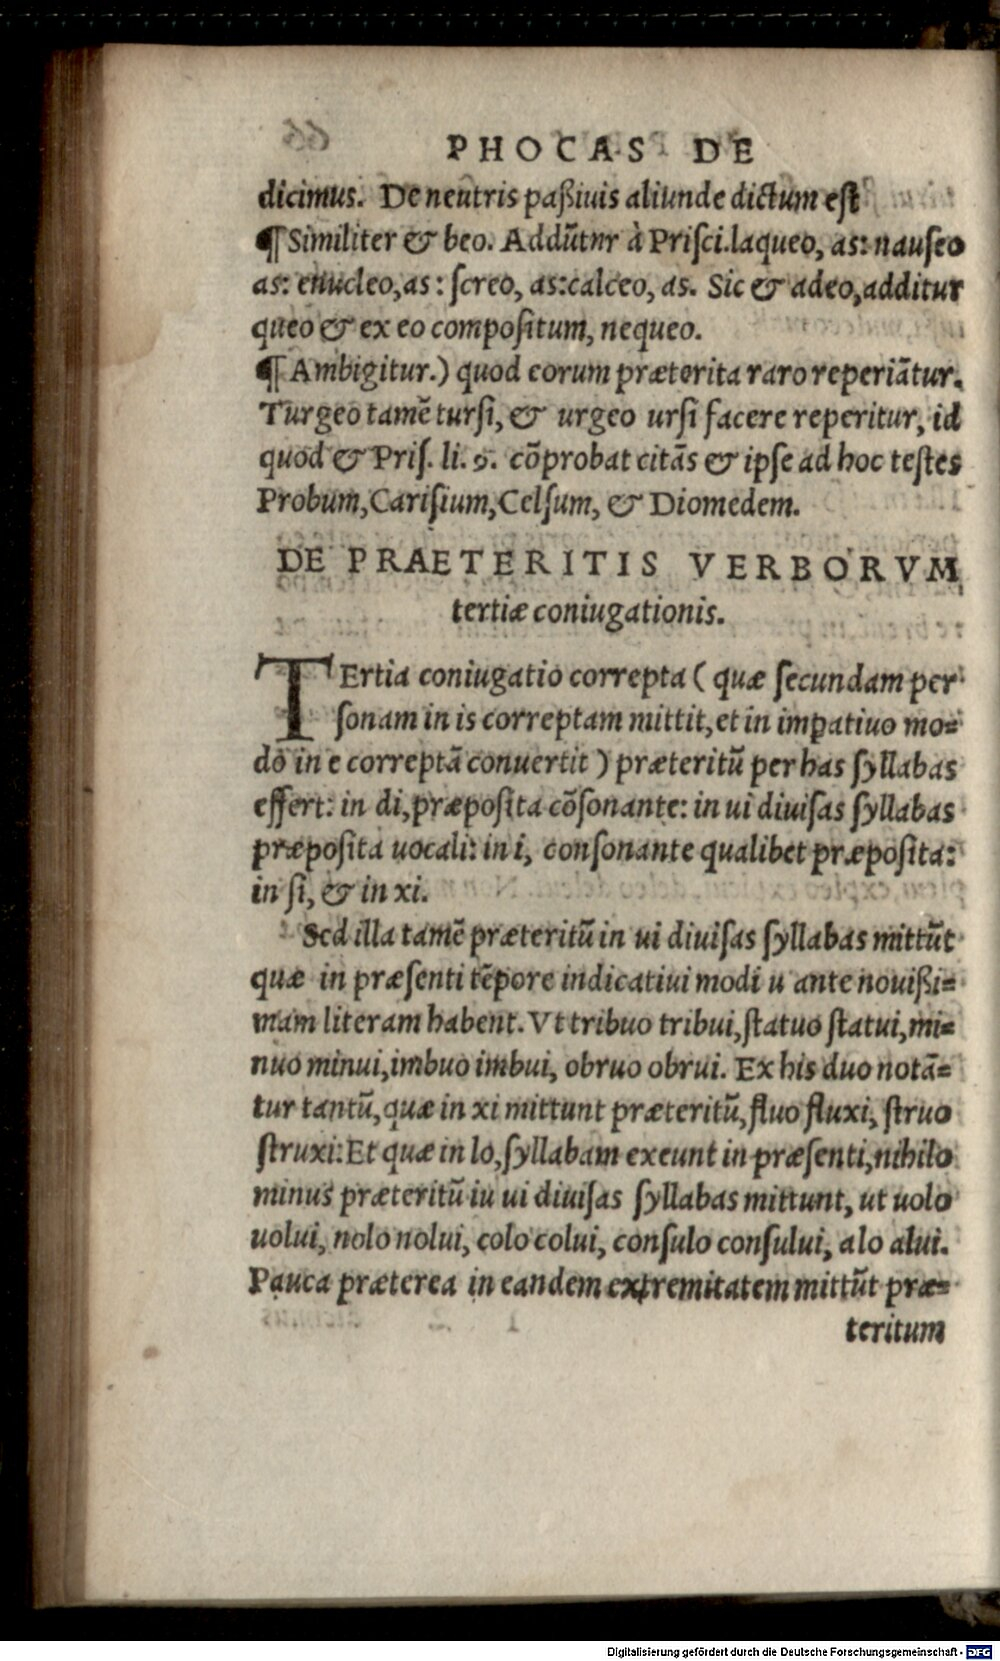 PHOCAS DE
dicimus. De neutris paßiuis aliunde dictum est
¶ Similiter & beo. Addūtnr à Prisci. laqueo, as: nauseo
as: enucleo, as: screo, as: calceo, as. Sic & adeo, additur
queo & ex eo compositum, nequeo.
¶ Ambigitur.) quod eorum præterita raro reperiātur.
Turgeo tamē tursi, & urgeo ursi facere reperitur, id
quod & Pris. li. 9. cōprobat citās & ipse ad hoc testes
Probum, Carisium, Celsum, & Diomedem.
DE PRAETERITIS VERBORVM
tertiæ coniugationis.
TErtia coniugatio correpta ( quæ secundam per
sonam in is correptam mittit, et in imꝑatiuo mo=
do in e correptā conuertit ) præteritū per has syllabas
effert: in di, præposita cōsonante: in ui diuisas syllabas
præposita uocali: in i, consonante qualibet præposita:
in si, & in xi.
Sed illa tamē præteritū in ui diuisas syllabas mittūt
quæ in præsenti tēpore indicatiui modi u ante nouißi=
mam literam habent. Vt tribuo tribui, statuo statui, mi=
nuo minui, imbuo imbui, obruo obrui. Ex his duo notā=
tur tantū, quæ in xi mittunt præteritū, fluo fluxi, struo
struxi: Et quæ in lo, syllabam exeunt in præsenti, nihilo
minus præteritū iu ui diuisas syllabas mittunt, ut uolo
uolui, nolo nolui, colo colui, consulo consului, alo alui.
Pauca præterea in eandem extremitatem mittūt præ=
teritum
Digitalisierung gefördert durch die Deutsche Forschungsgemeinschaft - DFG